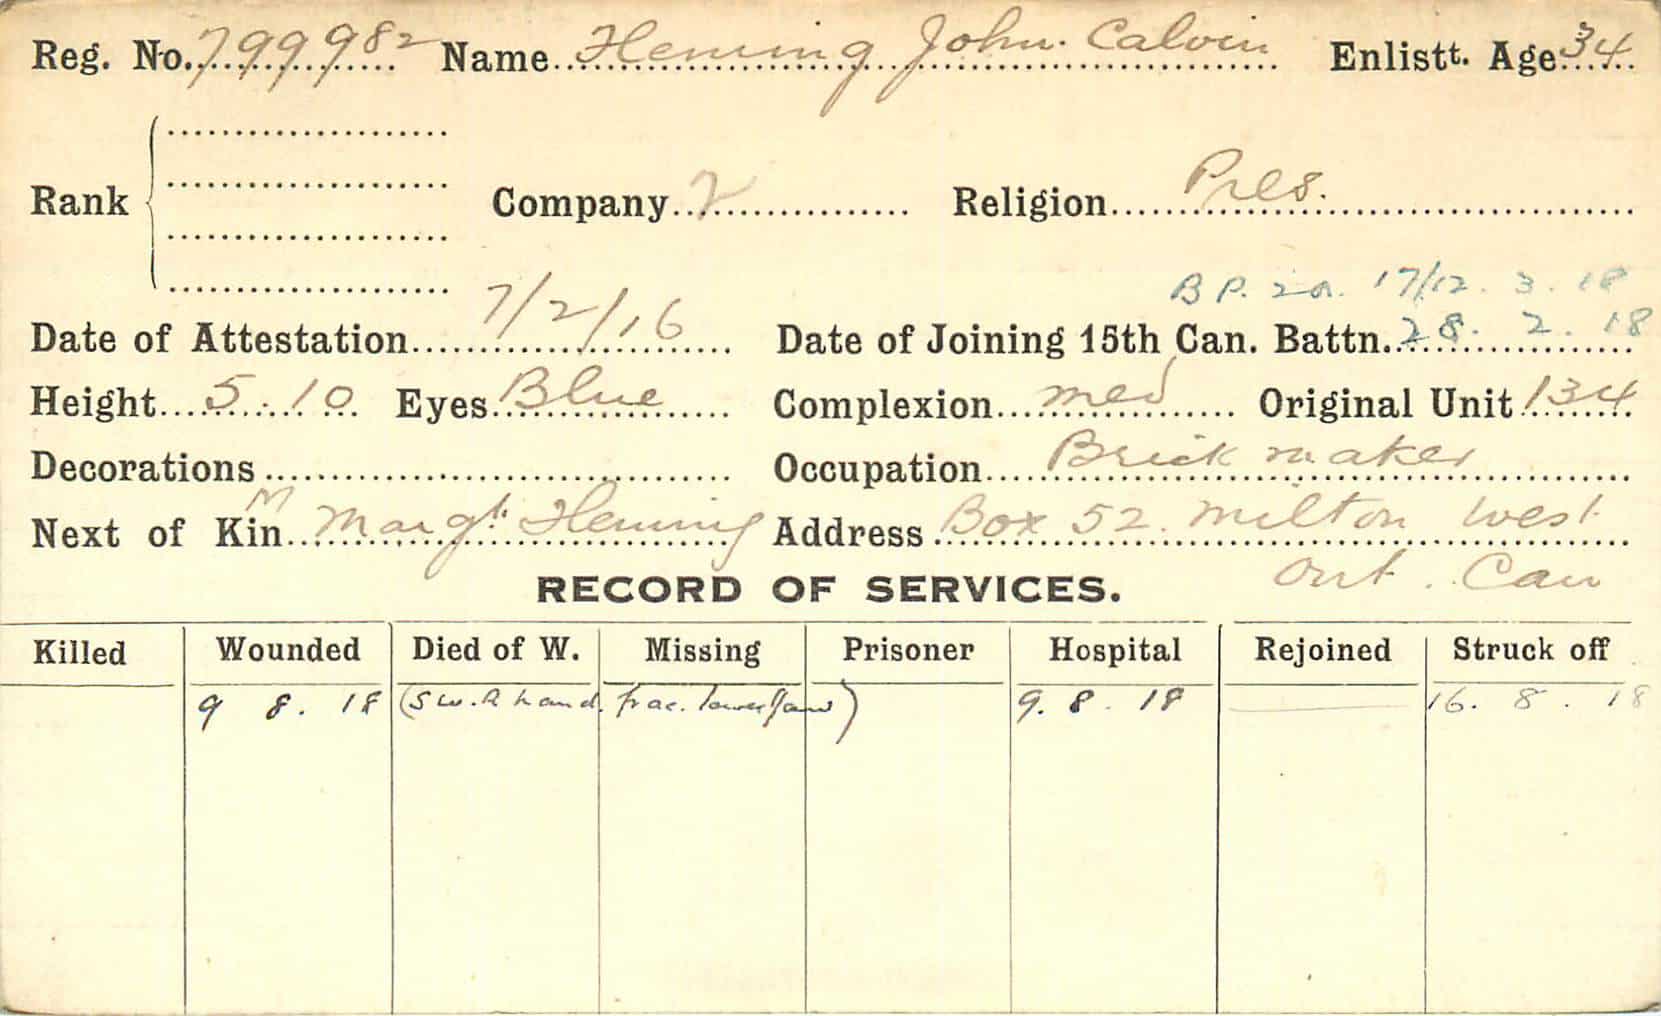 Reg. No. 799982 Name Heming John. Calvin Enlistt. Age 34
Rank Company 2 Religion Pres.
B P. 2a. 17/12. 3. 18
Date of Attestation 7/2/16 Date of Joining 15th Can. Battn. 28. 2. 18
Height 5.10 Eyes Blue Complexion med Original Unit 134
Decorations Occupation Brick maker
M
Next of Kin Margt. Heming Address Box 52. Milton West
Ont. Can
RECORD OF SERVICES.
Killed Wounded Died of W. Missing Prisoner Hospital Rejoined Struck off
9 8. 18 (Sw. R hand. frac. lower Jaw) 9. 8. 18 16. 8. 18